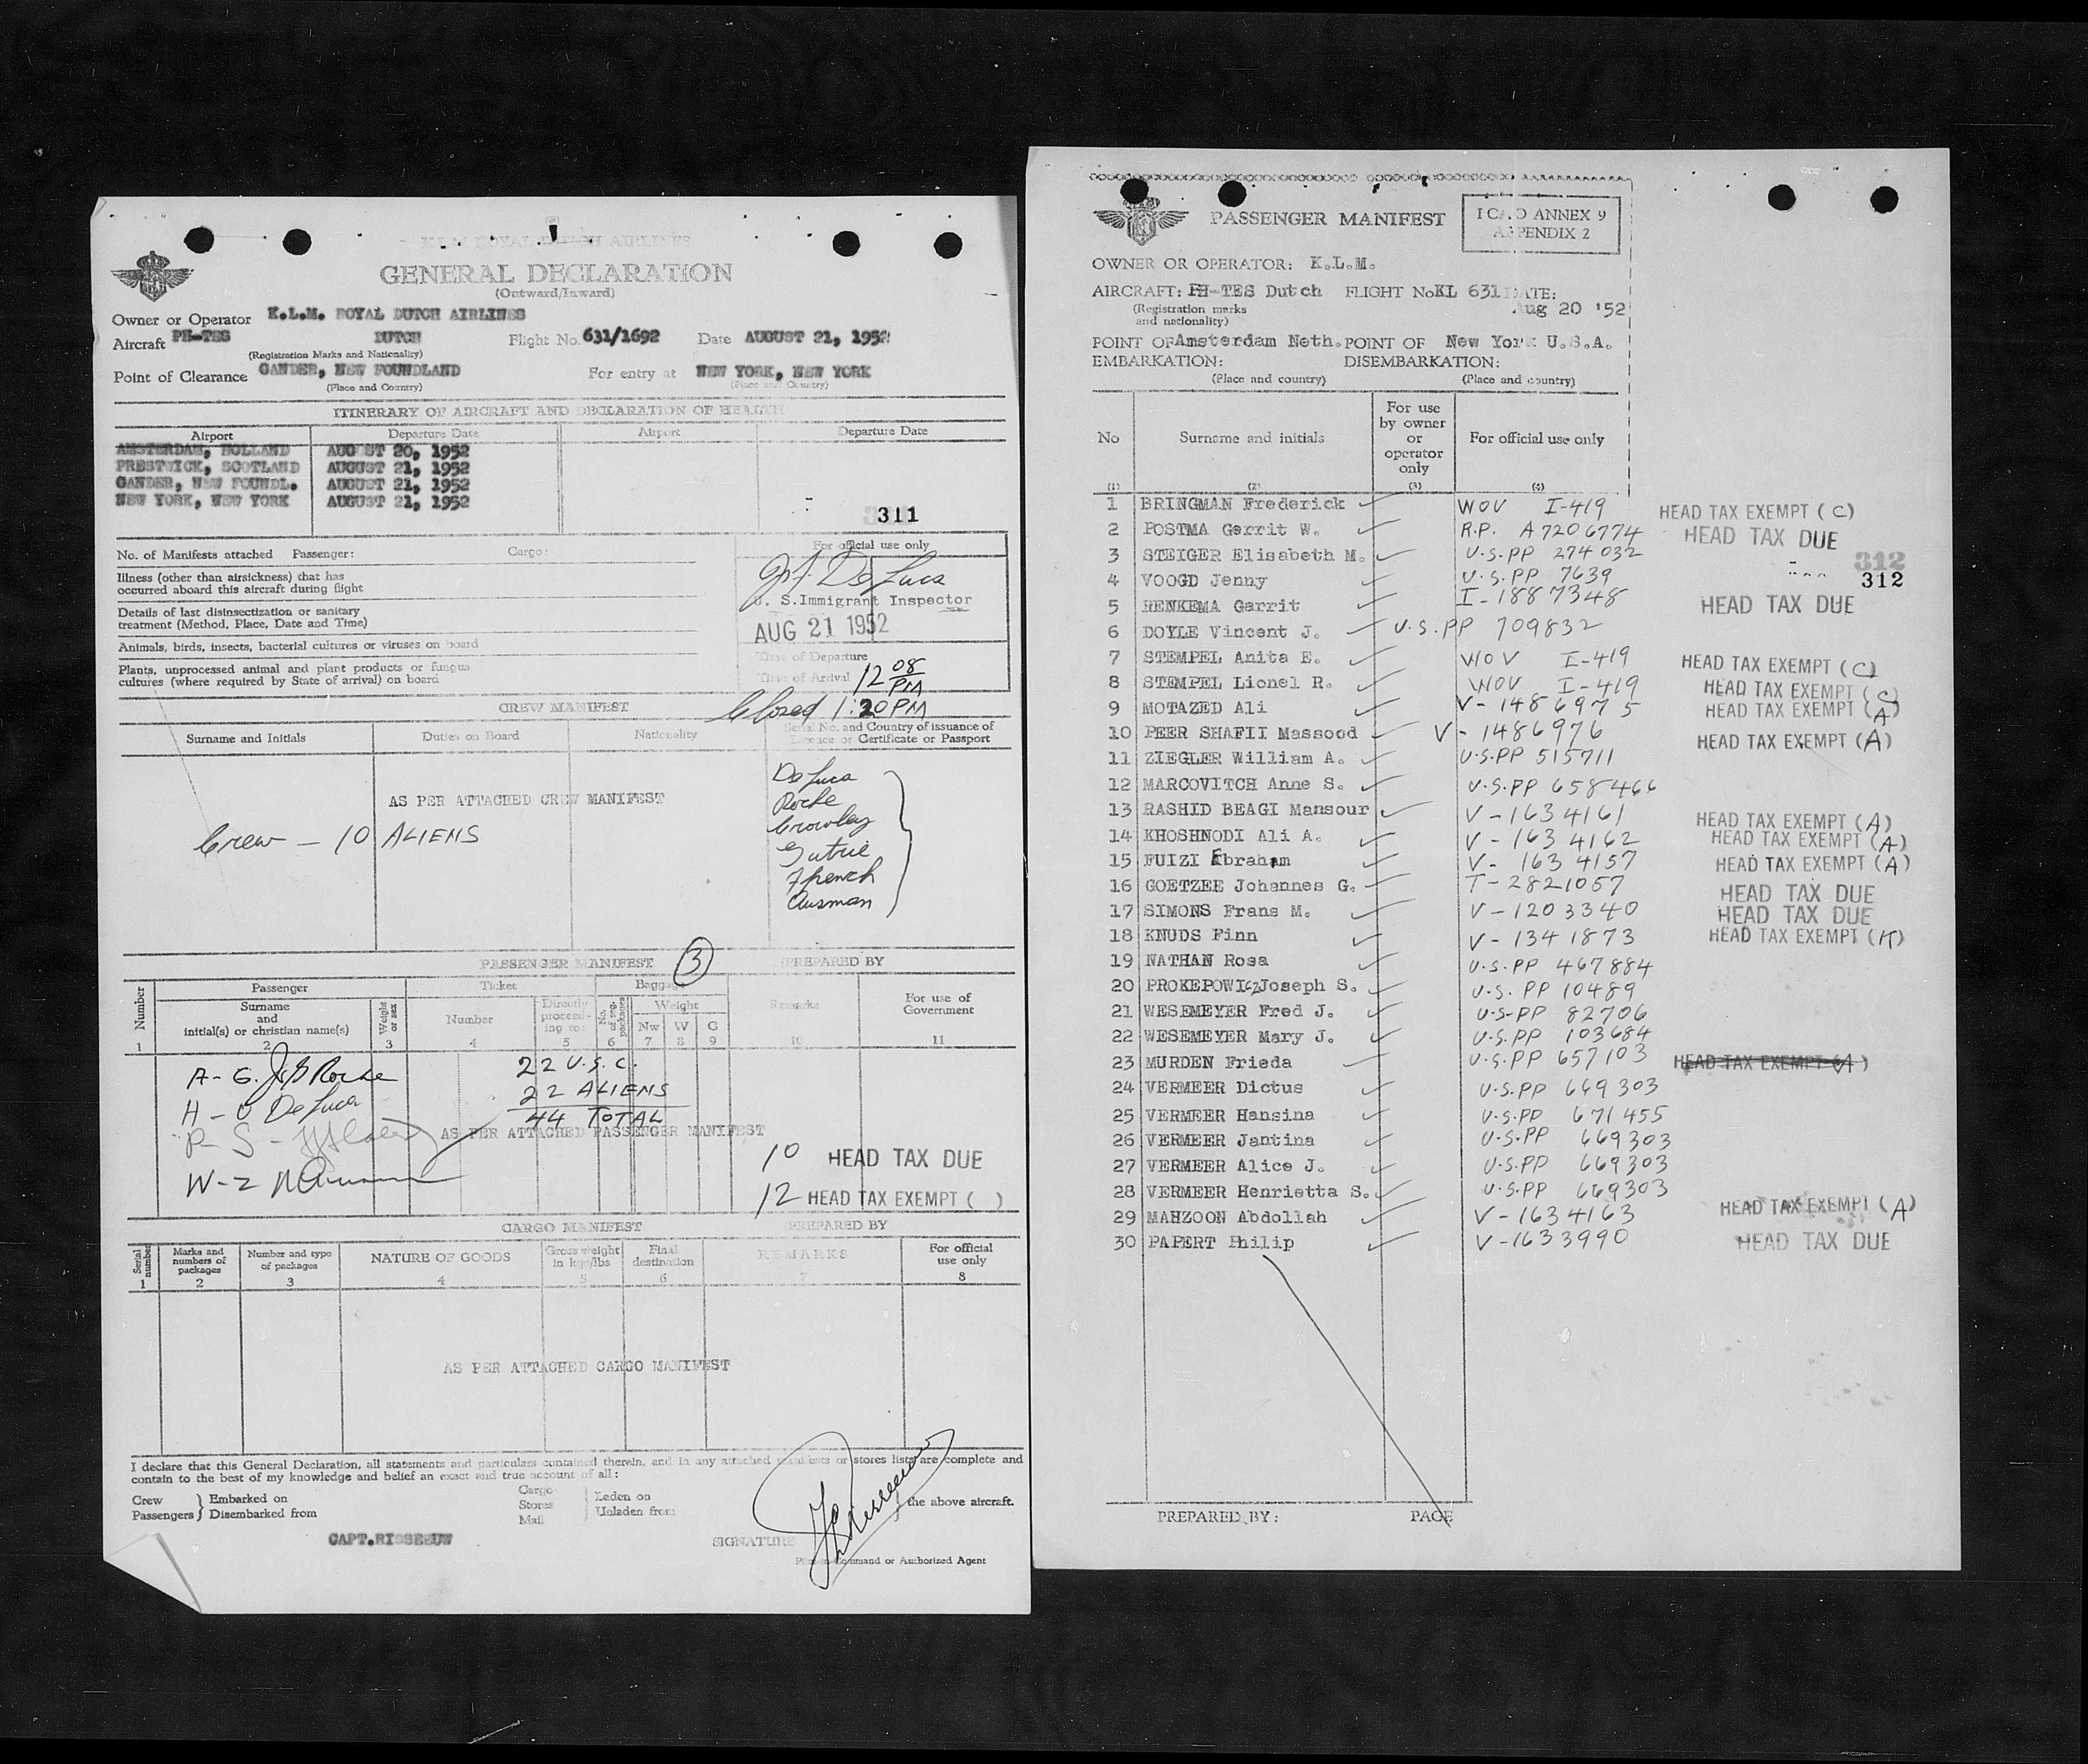 K.L.M. ROYAL DUTCH AIRLINES
GENERAL DECLARATION
(Outward/Inward)
Owner or Operator K.L.M. ROYAL DUTCH AIRLINES
Aircraft PH-TES DUTCH Flight No. 631/1692 Date AUGUST 21, 1952
(Registration Marks and Nationality)
Point of Clearance GANDER, NEW FOUNDLAND For entry at NEW YORK, NEW YORK
(Place and Country) (Place and Country)
ITINERARY OF AIRCRAFT AND DECLARATION OF HEALTH
Airport Departure Date Airport Departure Date
AMSTERDAM, HOLLAND AUGUST 20, 1952
PRESTWICK, SCOTLAND AUGUST 21, 1952
GANDER, NEW FOUNDL. AUGUST 21, 1952
NEW YORK, NEW YORK AUGUST 21, 1952
311
No. of Manifests attached Passenger: Cargo: For official use only
Illness (other than airsickness) that has
occurred aboard this aircraft during flight
De Luca
U. S. Immigrant Inspector
Details of last disinsectization or sanitary
treatment (Method, Place, Date and Time)
AUG 21 1952
Animals, birds, insects, bacterial cultures or viruses on board
Time of Departure
Plants, unprocessed animal and plant products or fungus
cultures (where required by State of arrival) on board
Time of Arrival 12 08 PM
Closed 1:20 PM
CREW MANIFEST
Surname and Initials Duties on Board Nationality Serial No. and Country of issuance of
Licence or Certificate or Passport
AS PER ATTACHED CREW MANIFEST
Crew - 10 ALIENS
De Luca
Roche
Crowley
Gutrie
French
Ausman
PASSENGER MANIFEST (3) (PREPARED BY
Number Passenger Ticket Baggage Remarks For use of
Government
Surname
and
initial(s) or christian name(s)
Weight or sex
Number
Directly proceeding to:
No. of reg. packages
Weight
Nw W G
1 2 3 4 5 6 7 8 9 10 11
A - G. Roche
H - O De Luca
P - S -
W - Z
22 U.S.C.
22 ALIENS
44 TOTAL
AS PER ATTACHED PASSENGER MANIFEST
10 HEAD TAX DUE
12 HEAD TAX EXEMPT ( )
CARGO MANIFEST (PREPARED BY
Serial number
Marks and numbers of packages
Number and type of packages
NATURE OF GOODS
Gross weight in kgs/lbs
Final destination
REMARKS
For official use only
1 2 3 4 5 6 7 8
AS PER ATTACHED CARGO MANIFEST
I declare that this General Declaration, all statements and particulars contained therein, and in any attached manifests or stores lists are complete and
contain to the best of my knowledge and belief an exact and true account of all:
Crew
Passengers } Embarked on
Disembarked from
Cargo
Stores
Mail
Laden on
Unladen from
the above aircraft.
CAPT. RISSEEUW
SIGNATURE
Pilot in Command or Authorized Agent
PASSENGER MANIFEST
ICAO ANNEX 9
APPENDIX 2
OWNER OR OPERATOR: K.L.M.
AIRCRAFT: PH-TES Dutch FLIGHT No KL 631 DATE:
Aug 20 '52
(Registration marks
and nationality)
POINT OF Amsterdam Neth. POINT OF New York U.S.A.
EMBARKATION: DISEMBARKATION:
(Place and country) (Place and country)
No Surname and initials For use by owner or operator only For official use only
(1) (2) (3) (4)
1 BRINGMAN Frederick WOV I-419 HEAD TAX EXEMPT (C)
2 POSTMA Gerrit W. R.P. A7206774 HEAD TAX DUE
3 STEIGER Elisabeth M. U.S.PP 274032
312
4 VOOGD Jenny U.S.PP 7639
312
5 RENKEMA Gerrit I-1887348 HEAD TAX DUE
6 DOYLE Vincent J. U.S.PP 709832
7 STEMPEL Anita E. WOV I-419 HEAD TAX EXEMPT (C)
8 STEMPEL Lionel R. WOV I-419 HEAD TAX EXEMPT (C)
9 MOTAZED Ali V-1486975 HEAD TAX EXEMPT (A)
10 PEER SHAFII Massood V-1486976 HEAD TAX EXEMPT (A)
11 ZIEGLER William A. U.S.PP 515711
12 MARCOVITCH Anne S. U.S.PP 658466
13 RASHID BEAGI Mansour V-1634161 HEAD TAX EXEMPT (A)
14 KHOSHNODI Ali A. V-1634162 HEAD TAX EXEMPT (A)
15 FUIZI Ebraham V-1634157 HEAD TAX EXEMPT (A)
16 GOETZEE Johannes G. T-2821057 HEAD TAX DUE
17 SIMONS Frans M. V-1203340 HEAD TAX DUE
18 KNUDS Finn V-1341873 HEAD TAX EXEMPT (K)
19 NATHAN Rosa U.S.PP 467884
20 PROKEPOWICZ Joseph S. U.S.PP 10489
21 WESEMEYER Fred J. U.S-PP 82706
22 WESEMEYER Mary J. U.S.PP 103684
23 MURDEN Frieda U.S.PP 657103 HEAD TAX EXEMPT (A)
24 VERMEER Dictus U.S.PP 669303
25 VERMEER Hansina U.S.PP 671455
26 VERMEER Jantina U.S.PP 669303
27 VERMEER Alice J. U.S.PP 669303
28 VERMEER Henrietta S. U.S.PP 669303
29 MAHZOON Abdollah V-1634163 HEAD TAX EXEMPT (A)
30 PAPERT Philip V-1633990 HEAD TAX DUE
PREPARED BY: PAGE